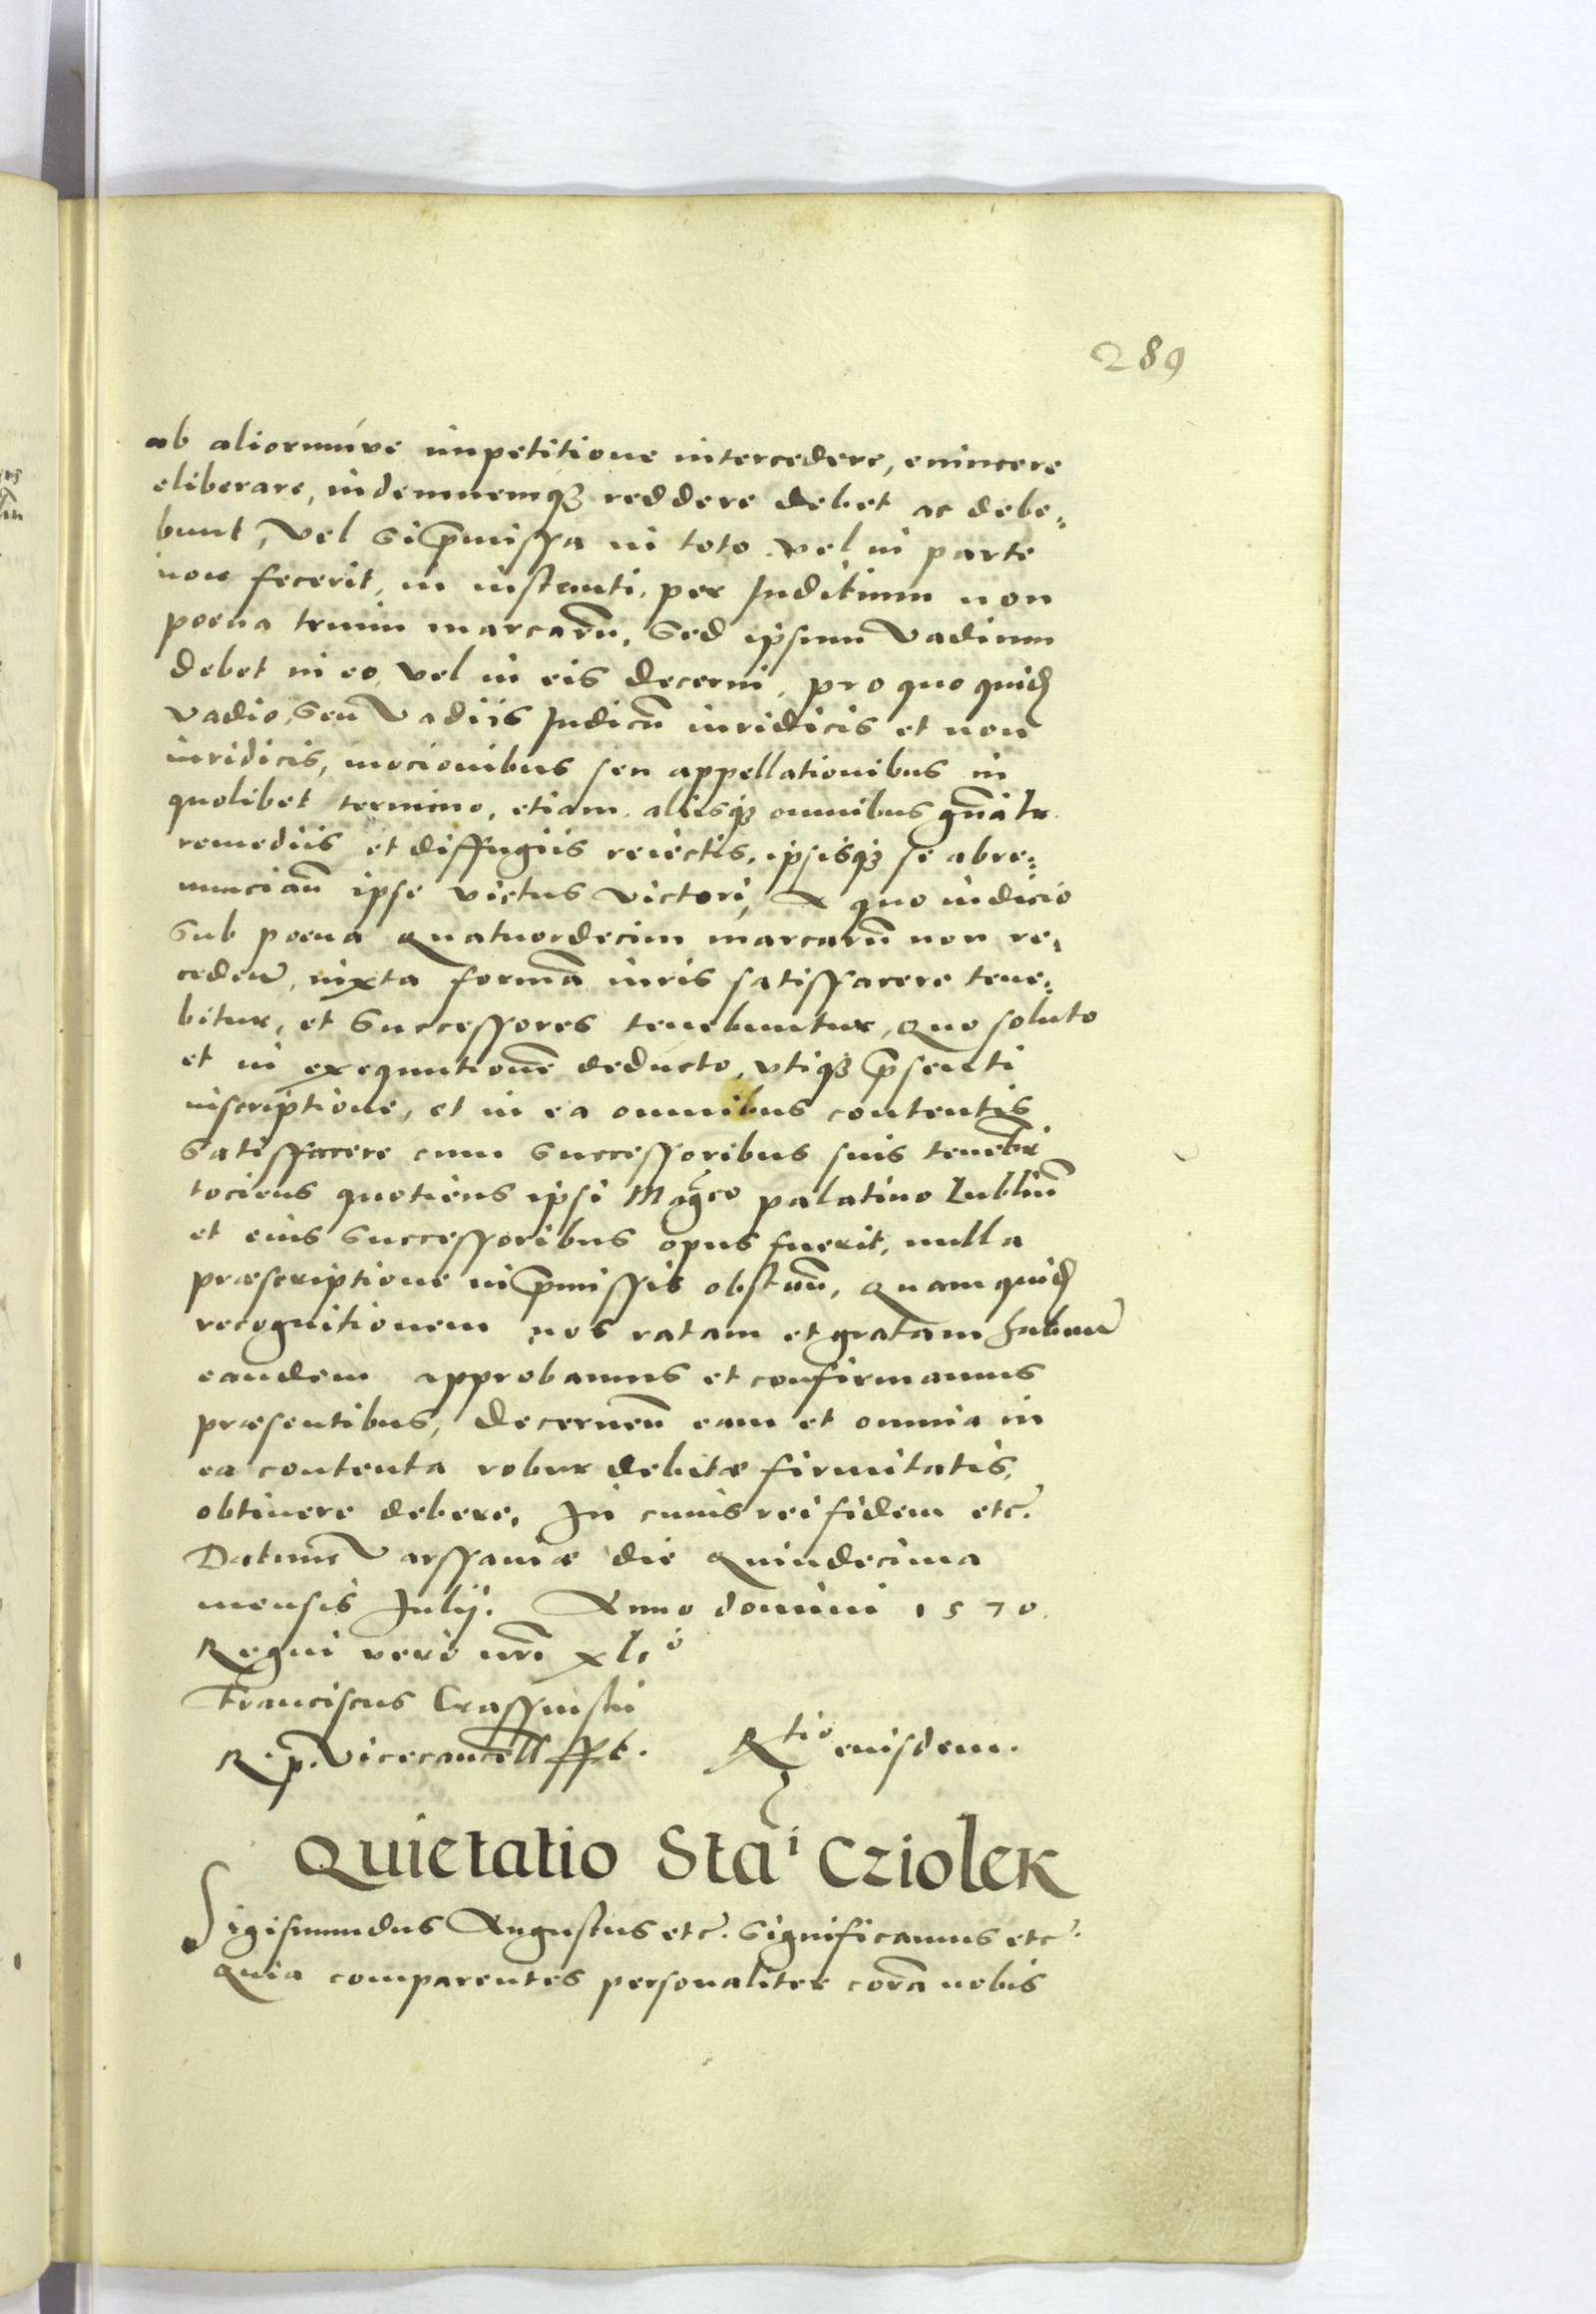 289
ab aliorumve impetitione intercedere, evincere
eliberare, indemnemq3 reddere debet ac debe:
bunt, vel si p̄missa in toto vel in parte
non fecerit, in instanti, per Juditium non
poena trium marcarū, sed ipsum vadium
debet in eo, vel in eis decerni, pro quo quid
vadio, seu Vadiis Judicū iuridicis et non
iuridicis, mocionibus seu appellationibus in
quolibet termino, etiam aliisq3 omnibus gn̄alr
remediis et diffugiis reiectis, ipsisq3 se abre:
nunciān ipse victus victori, A quo iudicio
sub poena Quatuordecim marcarū non re,
ceden̄, iuxta formā iuris satisffacere tene:
bitur, et Successores tenebuntur, Quo soluto
et in exequutionē deducto, utiq3 p̄senti
inscriptione, et in ea omnibus contentis
satisffacere cum successoribus suis tenebr
tociens quotiens ipsi Magco palatino Lublin̄
et eius successoribus opus fuerit, nulla
præscriptione in p̄missis obstān, Quam quid
recognitionem nos ratam et gratam haben̄
eandem approbamus et confirmamus
præsentibus, decernen̄ eam et omnia in
ea contenta robur debitæ firmitatis,
obtinere debere, In cuius rei fidem etc.
Datum Varssaviæ die Quindecima
mensis Julij. Anno domini 1570.
Regni vero nrī xlio
Franciscus Crassinskii
R. p. Vicecancell sspt. Rtio eiusdem.
Quietatio Stai Cziolek
Sigismundus Augustus etc. significamus etc.
Quia comparentes personaliter corā nobis